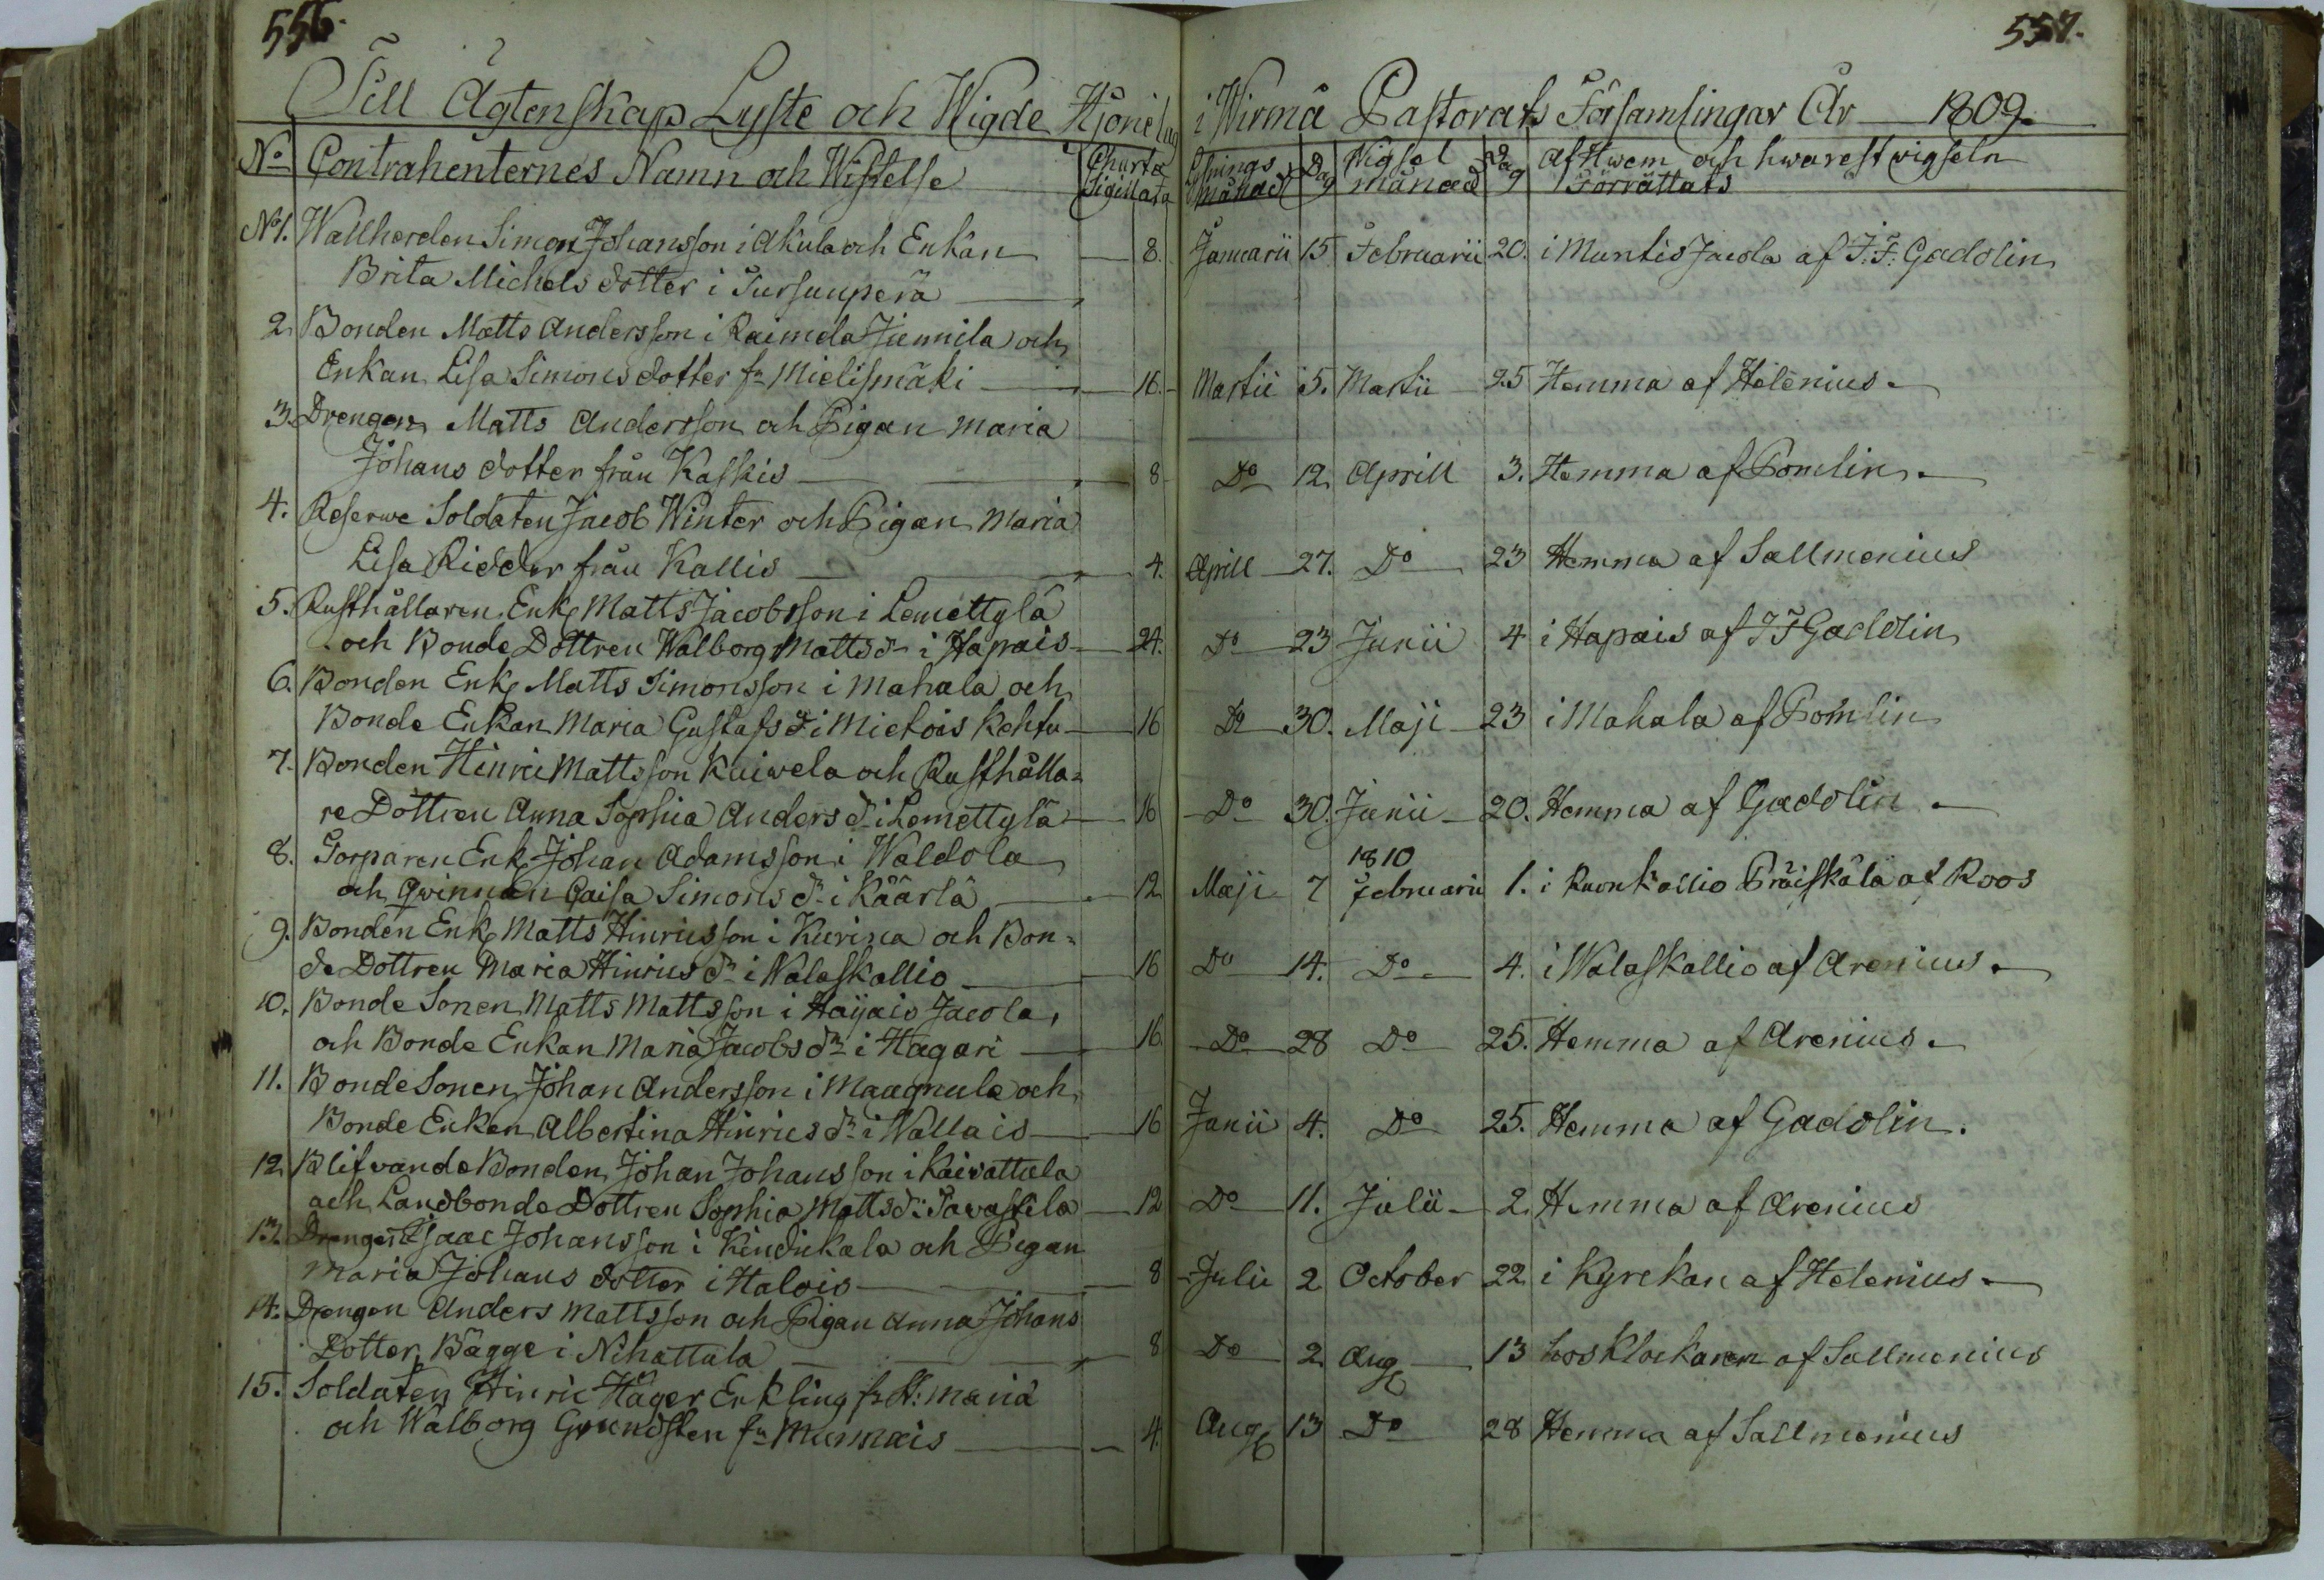 556.
Till Ägtenskap Lyste och Wigde Hjonelag
No Contrahenternes Namn och Wistelse Charta Sigillata
No 1. Wallherden Simon Johansson i Akula och Enkan
Brita Michels dotter i Sursunperä 8.
2. Bonden Matts Andersson i Raimela Juunila och
Enkan Lisa Simons dotter fr. Mielismäki 16.
3. Drengen Matts Andersson och Pigan Maria
Johans dotter från Kaskis 8
4. Reserwe Soldaten Jacob Winter och Pigan Maria
Lisa Ridder från Kallis 4.
5. Rusthållaren Enkl Matts Jacobsson i Lemettylä
och Bonde Dottren Walborg Matts dr i Hapais 24.
6. Bonden Enkl Matts Simonsson i Mahala och
Bonde Enkan Maria Gustafs dr i Mietois Kohtu 16
7. Bonden Hinric Mattsson Kaiwela och Rusthålla=
re Dottren Anna Sophia Anders dr i Lemettylä 16
8. Torparen Enkl Johan Adamsson i Waldola
och Qwinnan Caisa Simons dr i Käärlä 12
9. Bonden Enkl Matts Hinricsson i Keerina och Bon=
de Dottren Maria Hinrics dr i Walaskallio 16
10. Bonde Sonen Matts Mattsson i Haijais Jacola,
och Bonde Enkan Maria Jacobs dr i Hagari 16.
11. Bonde Sonen Johan Andersson i Maagnula och
Bonde Enken Albertina Hinrics dr i Wallais 16
12. Blifvande Bonden Johan Johansson i Kaiwattula
och Landbonde Dottren Sophia Matts dr Tavastila 12
13. Drengen Isaac Johansson i Kindukala och Pigan
Maria Johans dotter i Halois 8
14. Drengen Anders Mattsson och Pigan Anna Johans
Dotter Bägge i Nihattula 8
15. Soldaten Hinric Häger Enkling fr. St: Maria
och Walborg Grundsten fr. Munnais 4.
557.
i Wirmå Pastorats Församlingar År 1809.
Lysnings månad Dag Wigsel månad Dag Af Hwem och hwarest wigseln
Förrättats
Januarii 15 Februarii 20. i Muntis Jacola af J. F. Gadolin
Martii 5. Martii 25 Hemma af Helenius.
Do 12 Aprill 3. Hemma af Pomlin.
Aprill 27. Do 23 Hemma af Sallmenius
Do 23 Junii 4 i Hapais af J F Gadolin
Do 30. Maji 23 i Mahala af Pomlin
Do 30. Junii 20. Hemma af Gadolin
1810
Maji 7 Februarii 1. i Kuonkallio Präiskälä af Roos
Do 14. Do 4. i Walaskallio af Arenius.
Do 28 Do 25. Hemma af Arenius.
Junii 4. Do 25. Hemma af Gadolin.
Do 11. Julii 2. Hemma af Arenius
Julii 2 October 22 i Kyrckan af Helenius
Do 2 Aug 13 hos Klockaren af Sallmenius
Aug 13 Do 28 Hemma af Sallmenius